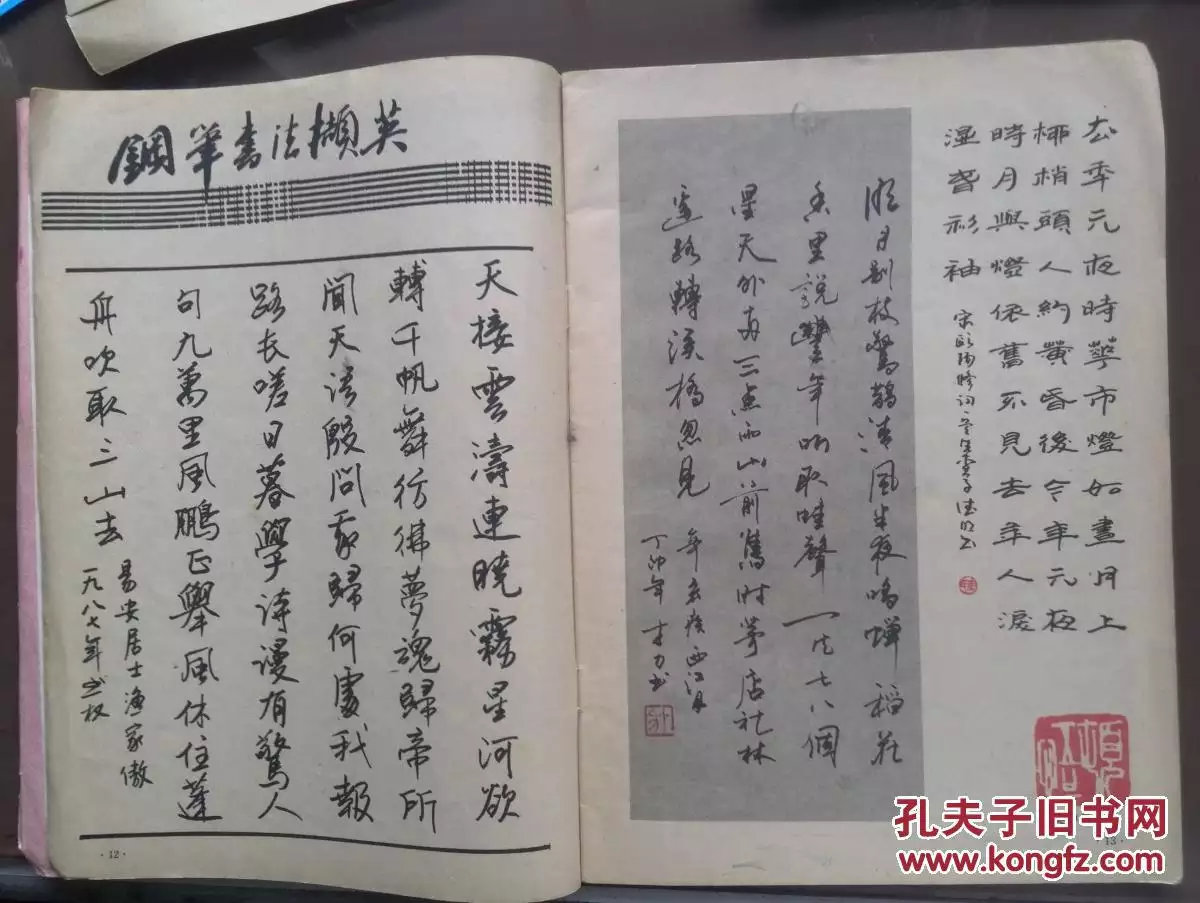 鋼笔书法撷英
天接雲濤連曉霧星河欲
轉千帆舞彷彿夢魂歸帝所
聞天語殷問我歸何處我報
路长嗟日暮學诗谩有驚人
句九萬里風鵬正舉風休住蓬
舟吹取三山去
易安居士渔家傲
一九八七年
·12·
去年元夜時花市燈如晝月上
柳梢頭人約黄昏後今年元夜
時月與燈依舊不見去年人淚
湿春衫袖
宋歐陽修词
明月别枝驚鹊清風半夜鳴蝉稻花
香里説豐年听取蛙聲一片七八個
星天外两三点雨山前舊时茅店社林
邊路轉溪橋忽見
辛弃疾西江月
丁卯年
·13·
孔夫子旧书网
www.kongfz.com